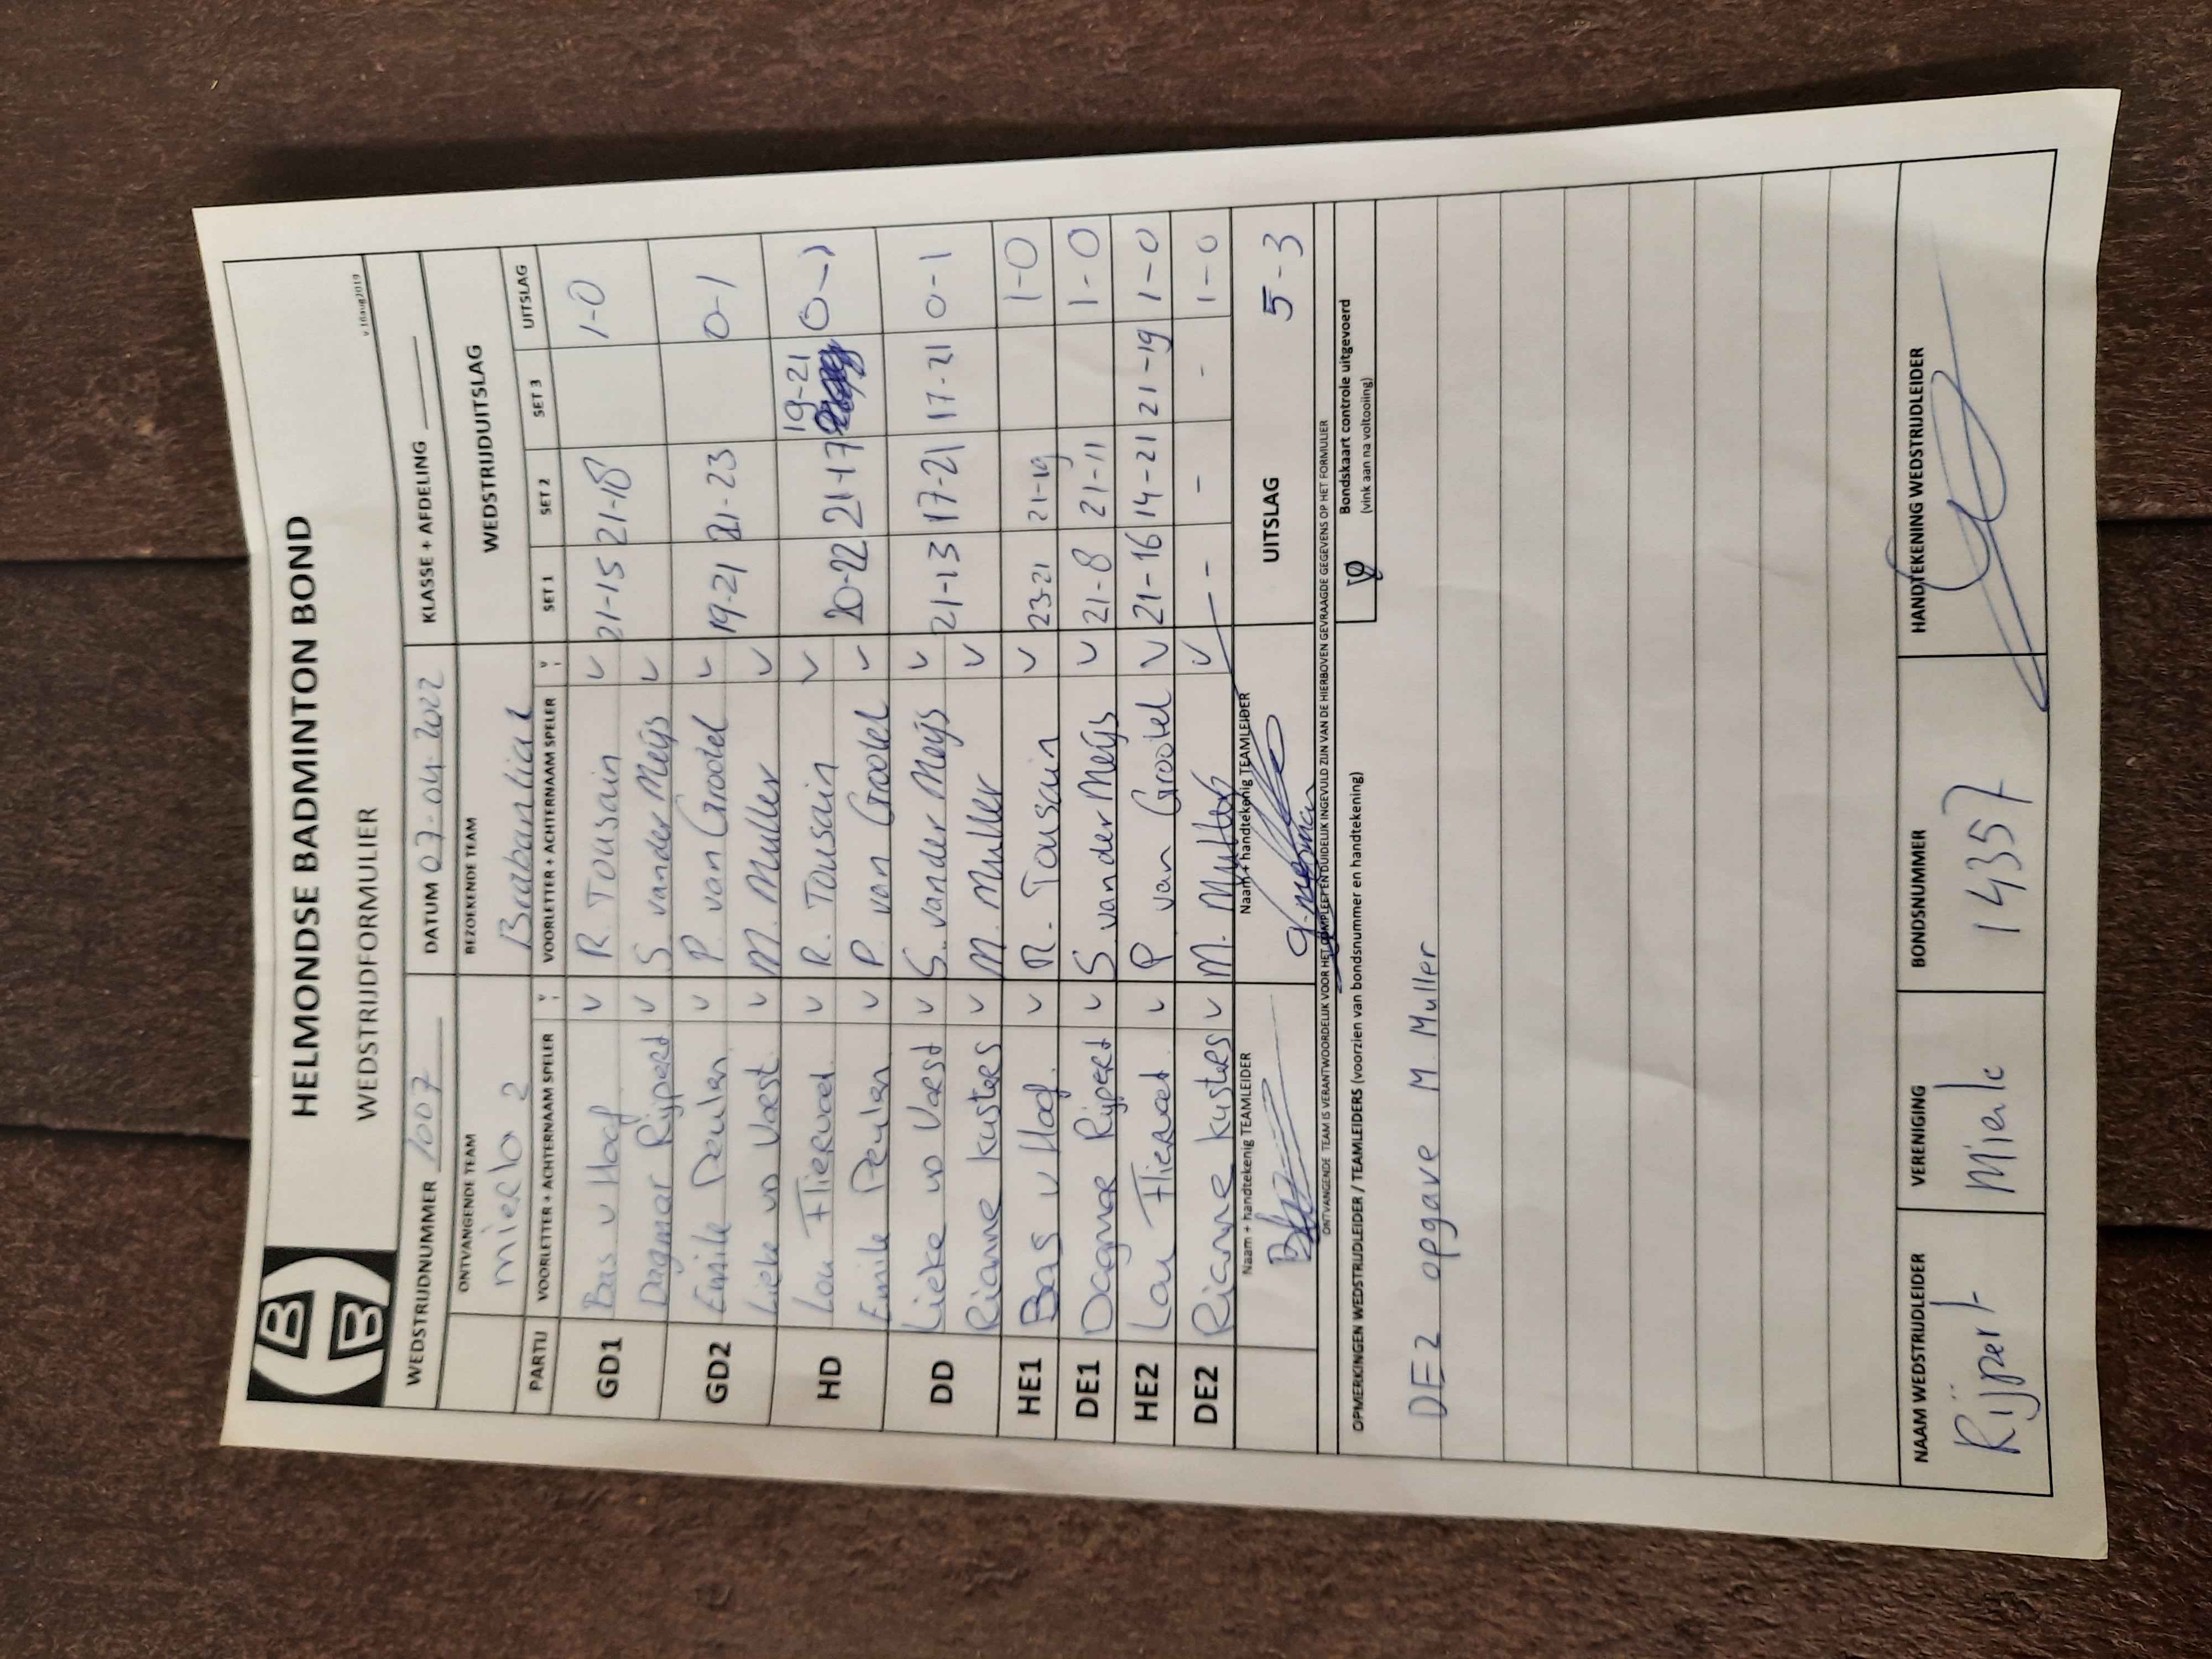 HELMONDSE BADMINTON BOND
WEDSTRIJDFORMULIER
v.16aug2019
WEDSTRIJDNUMMER 1007 DATUM 07-04-2022 KLASSE + AFDELING
ONTVANGENDE TEAM BEZOEKENDE TEAM WEDSTRIJDUITSLAG
Mierlo 2 Brabantia 1
PARTIJ VOORLETTER + ACHTERNAAM SPELER V VOORLETTER + ACHTERNAAM SPELER V SET 1 SET 2 SET 3 UITSLAG
GD1 Bas v Hoof V R. Tousain V 21-15 21-18 1-0
Dagmar Rijpert V S van der Meijs V
GD2 Emile Deulen V P. van Grootel V 19-21 21-23 0-1
Lieke vd Vorst V M. Muller V
HD Lou Fliervoet V R. Tousain V 20-22 21-17 19-21 0-1
Emile Deulen V P. van Grootel V
DD Lieke vd Vorst V S. van der Meijs V 21-13 17-21 17-21 0-1
Rianne Kusters V M. Muller V
HE1 Bas v Hoof. V R. Tousain V 23-21 21-19 1-0
DE1 Dagmar Rijpert V S. van der Meijs V 21-8 21-11 1-0
HE2 Lou Fliervoet V P van Grootel V 21-16 14-21 21-19 1-0
DE2 Rianne Kusters V M. Muller V - - - 1-0
Naam + handtekenig TEAMLEIDER Naam + handtekenig TEAMLEIDER UITSLAG 5-3
ONTVANGENDE TEAM IS VERANTWOORDELIJK VOOR HET COMPLEET EN DUIDELIJK INGEVULD ZIJN VAN DE HIERBOVEN GEVRAAGDE GEGEVENS OP HET FORMULIER
OPMERKINGEN WEDSTRIJDLEIDER / TEAMLEIDERS (voorzien van bondsnummer en handtekening) Bondskaart controle uitgevoerd
(vink aan na voltooiing)
DE2 opgave M. Muller
NAAM WEDSTRIJDLEIDER VERENIGING BONDSNUMMER HANDTEKENING WEDSTRIJDLEIDER
Rijpert Mierlo 14357